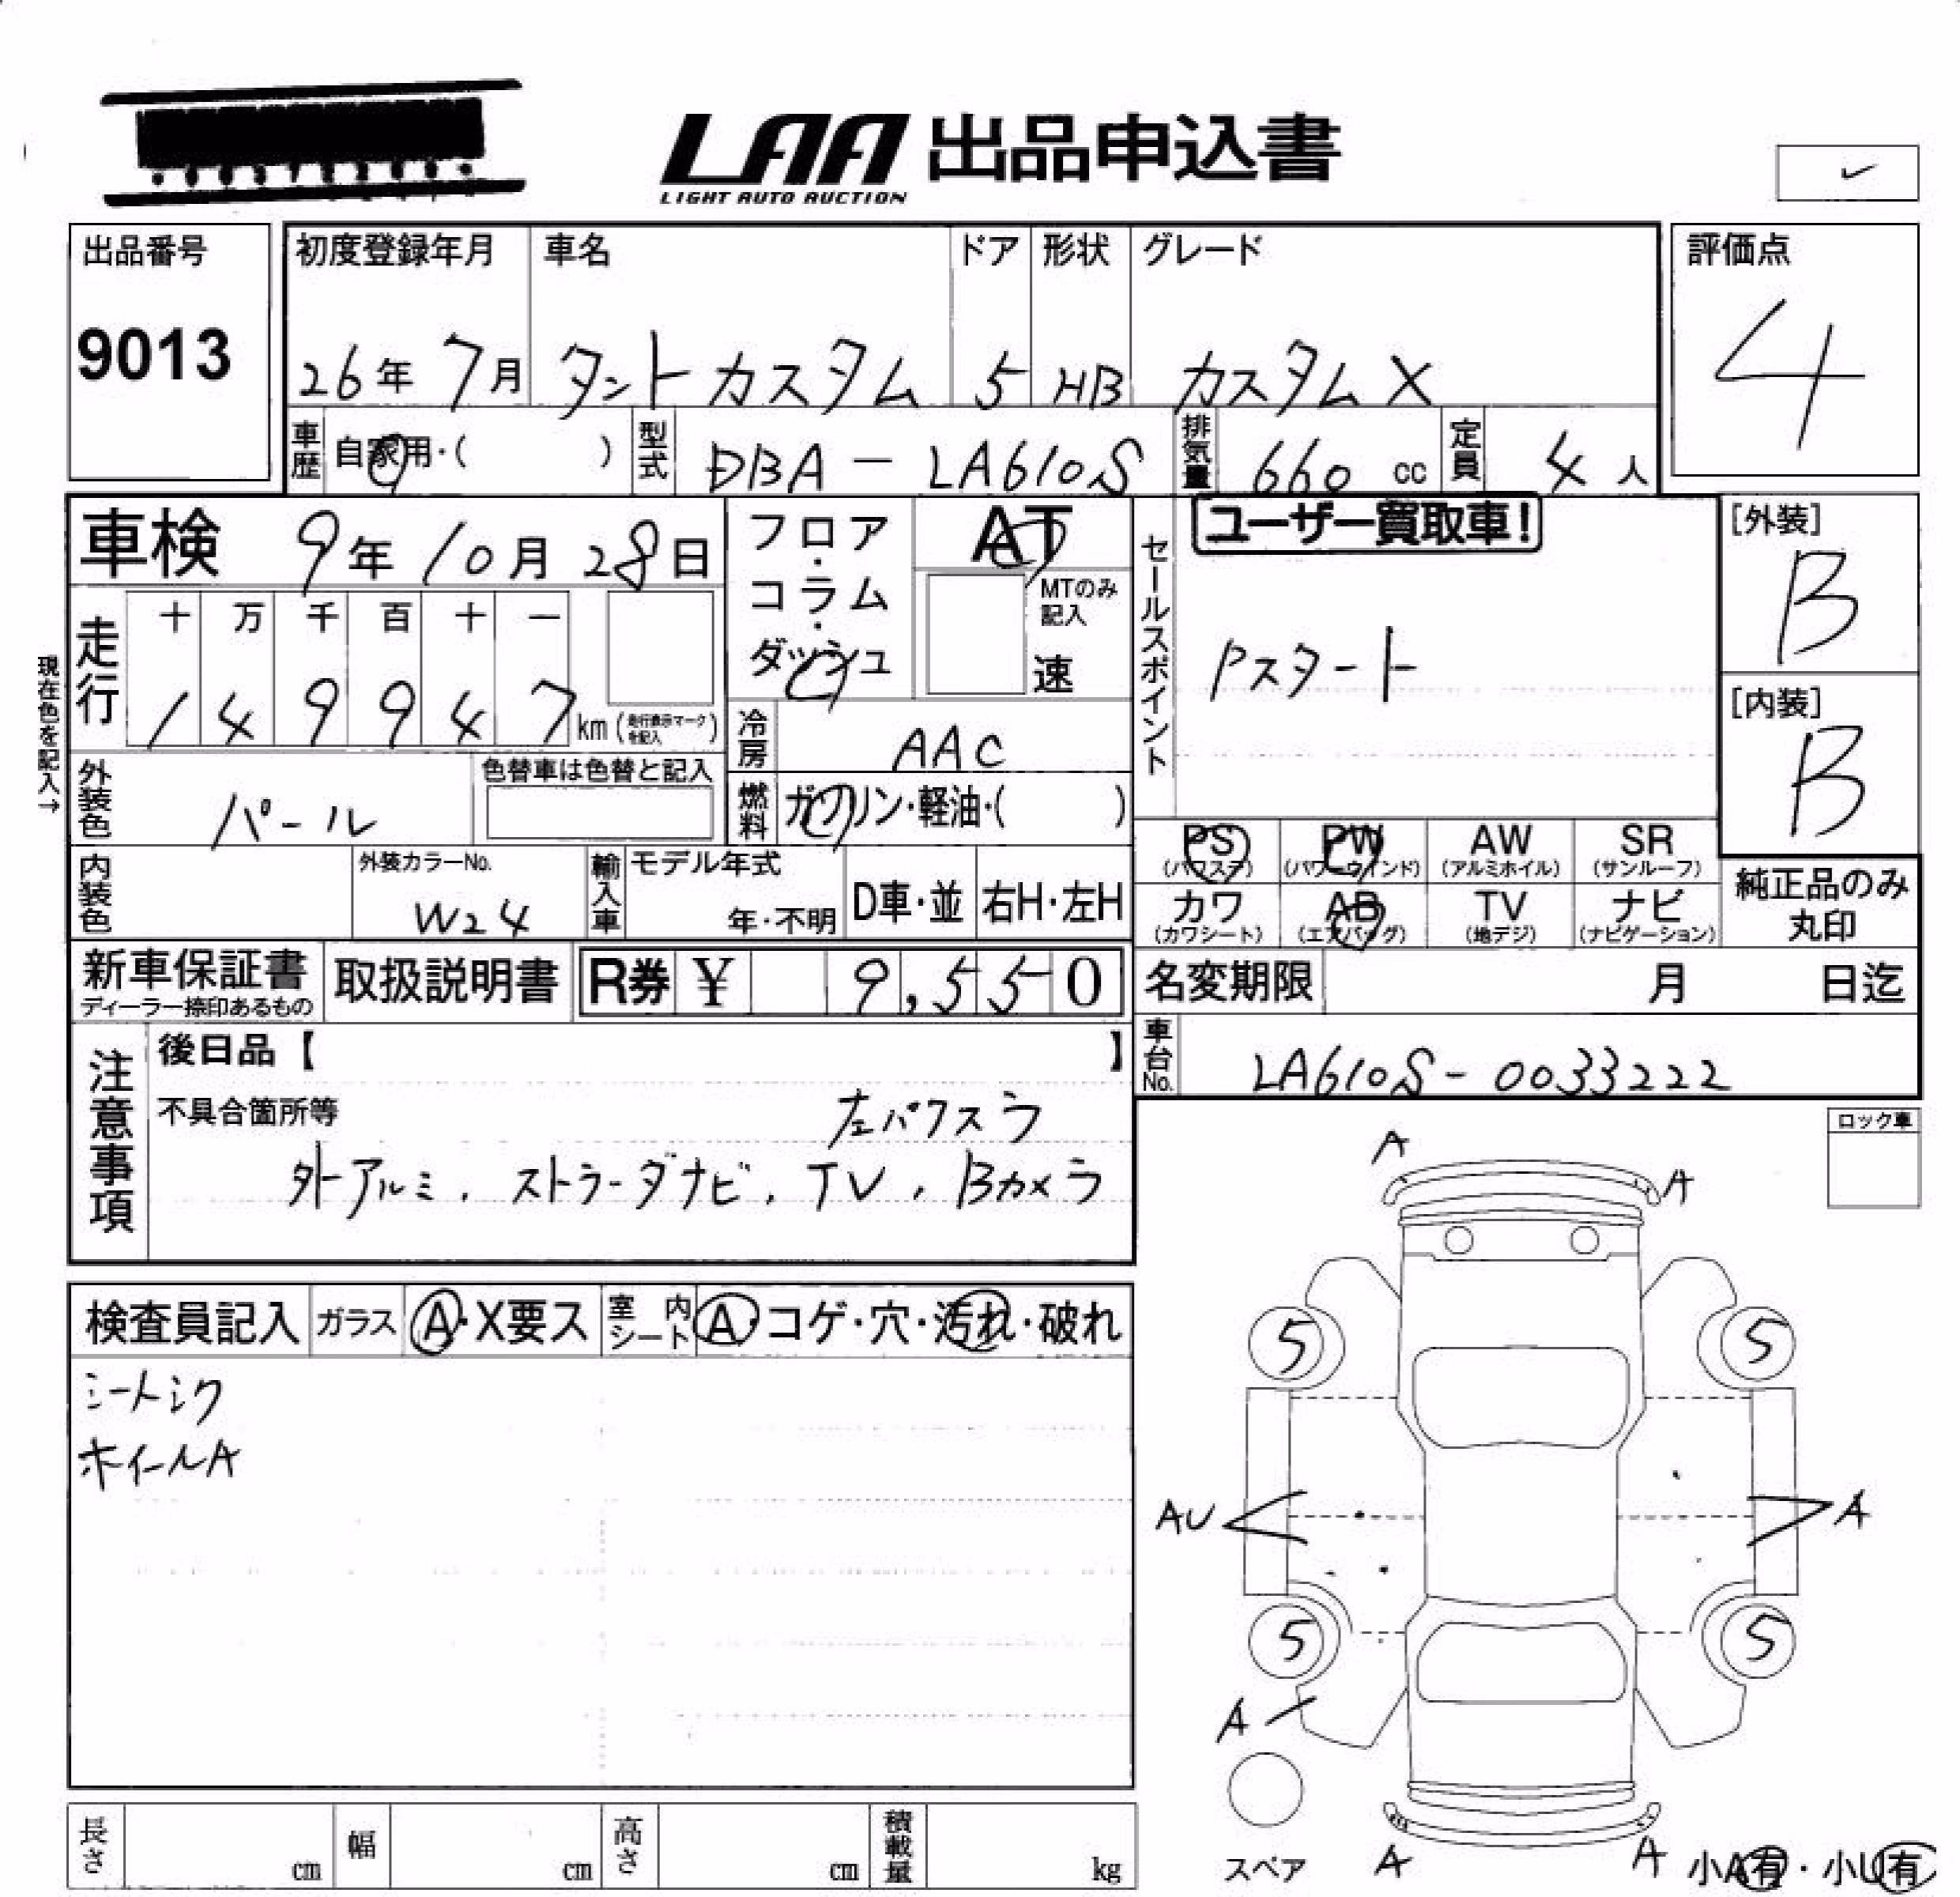 LAA 出品申込書
LIGHT AUTO AUCTION
出品番号
9013
初度登録年月
26年 7月
車名
タントカスタム
ドア
5
形状
HB
グレード
カスタムX
評価点
4
車歴 自家用・( )
型式 DBA-LA610S
排気量 660 cc
定員 4 人
車検 9年 10月 28日
フロア・コラム・ダッシュ
AT
MTのみ記入
速
セールスポイント
ユーザー買取車!
Pスタート
[外装]
B
[内装]
B
現在色を記入→
走行
十 万 千 百 十 一
1 4 9 9 4 7 km (走行表示マークを記入)
冷房 AAC
燃料 ガソリン・軽油・( )
外装色 パール
色替車は色替と記入
内装色
外装カラーNo.
W24
輸入車
モデル年式
年・不明
D車・並
右H・左H
PS (パワステ)
PW (パワーウインド)
AW (アルミホイル)
SR (サンルーフ)
カワ (カワシート)
AB (エアバッグ)
TV (地デジ)
ナビ (ナビゲーション)
純正品のみ丸印
新車保証書
ディーラー捺印あるもの
取扱説明書
R券 ¥ 9,550
名変期限 月 日迄
車台No. LA610S-0033222
注意事項
後日品【 】
不具合箇所等
左パワスラ
外アルミ、ストラーダナビ、TV、Bカメラ
ロック車
検査員記入
ガラス A・X要ス
室内シート A・コゲ・穴・汚れ・破れ
シートシク
ホイールA
A
A
5
5
AU
A
5
5
A
スペア
A
A
小A有・小U有
長さ cm
幅 cm
高さ cm
積載量 kg